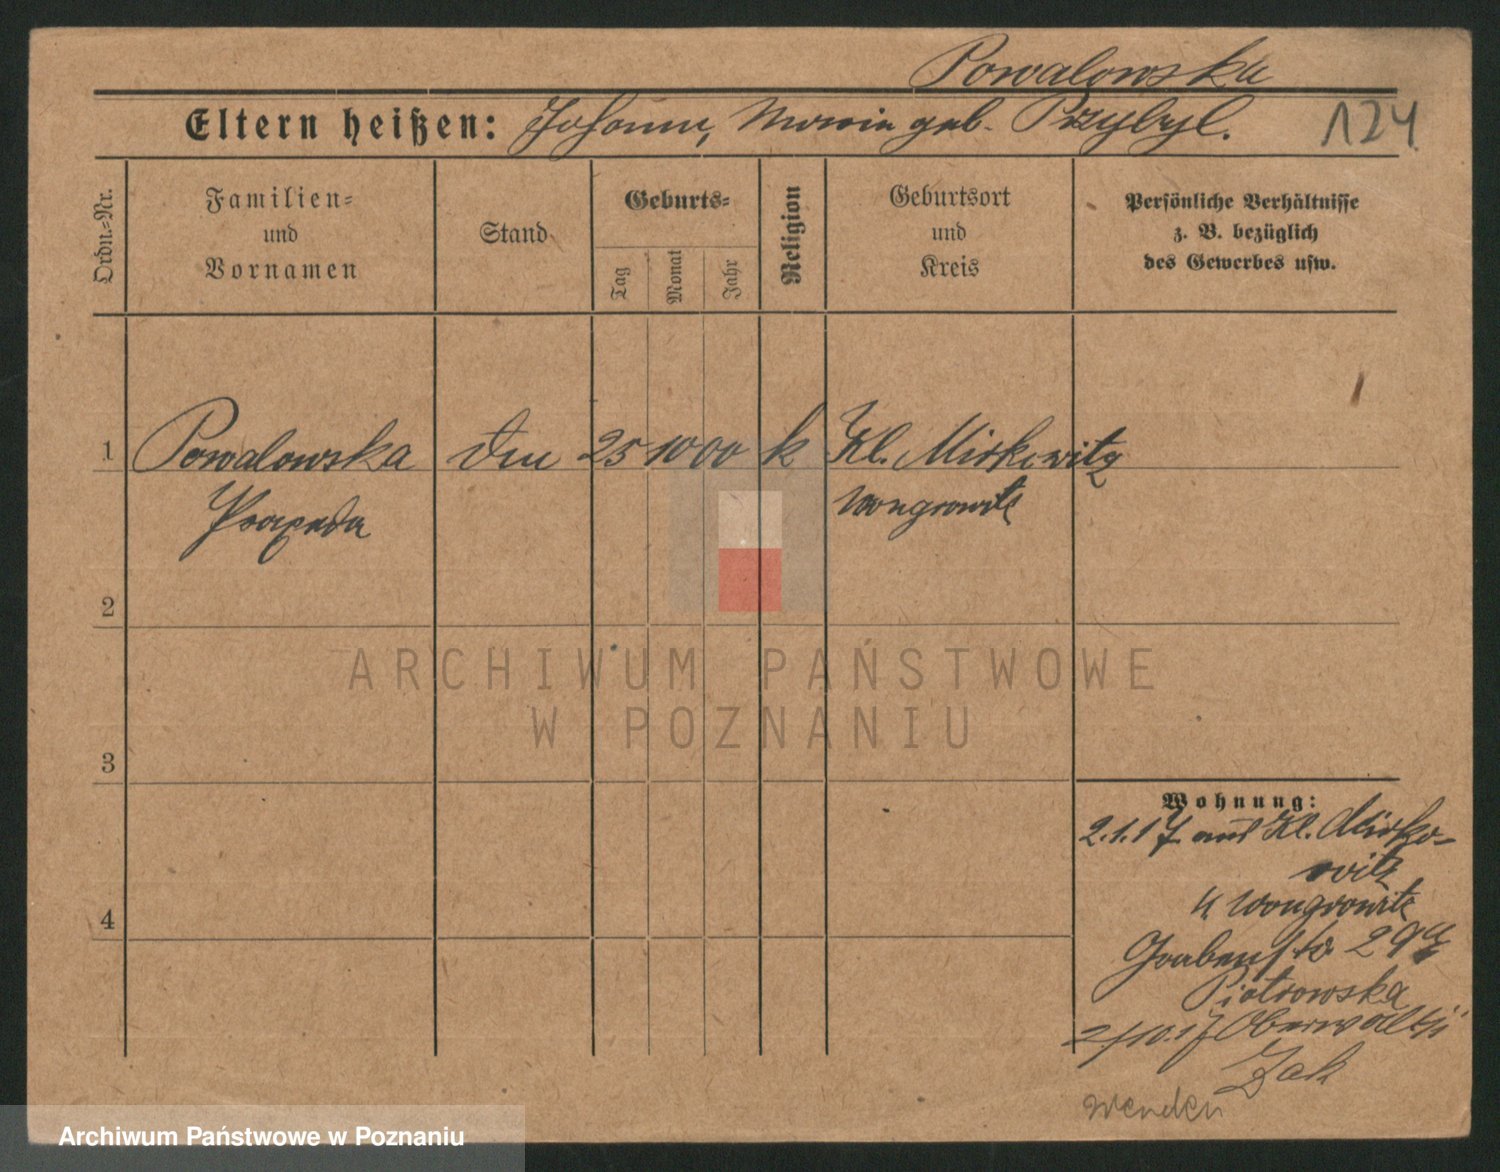 Powalowska
Eltern heißen: Johann, Maria geb. Przybyl.
124
Ordn.=Nr.
Familien=
und
Vornamen
Stand
Geburts=
Tag
Monat
Jahr
Religion
Geburtsort
und
Kreis
Persönliche Verhältnisse
z. B. bezüglich
des Gewerbes usw.
1 Powalowska 25 10 00 k Kl. Mirkowitz
Praxeda Wongrowitz
2
ARCHIWUM PAŃSTWOWE
W POZNANIU
3
4
Wohnung:
2.1.17 aus Kl. Mirko-
witz
Wongrowitz
Grabenstr. 29
Piotrowska
2/10.17 Oberwallstr
Zak
wenden
Archiwum Państwowe w Poznaniu